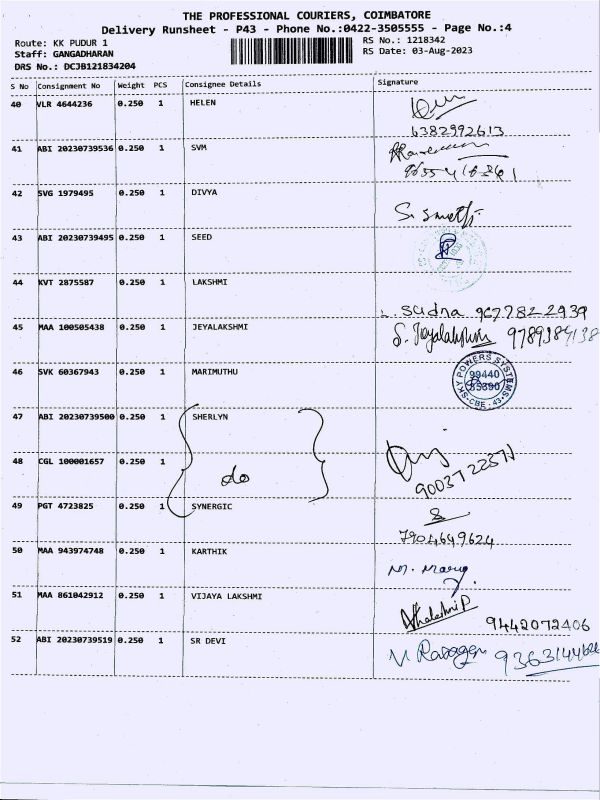 THE PROFESSIONAL COURIERS, COIMBATORE
Delivery Runsheet - P43 - Phone No.:0422-3505555 - Page No.:4
Route: KK PUDUR 1
Staff: GANGADHARAN
DRS No.: DCJB121834204
RS No.: 1218342
RS Date: 03-Aug-2023
S No Consignment No Weight PCS Consignee Details Signature
40 VLR 4644236 0.250 1 HELEN
6382992613
41 ABI 20230739536 0.250 1 SVM
42 SVG 1979495 0.250 1 DIVYA
43 ABI 20230739495 0.250 1 SEED
44 KVT 2875587 0.250 1 LAKSHMI
sadna 9677822939
45 MAA 100505438 0.250 1 JEYALAKSHMI
9789384138
46 SVK 60367943 0.250 1 MARIMUTHU
SKY POWERS SYSTEMS
99440
85390
CBE - 43
47 ABI 20230739500 0.250 1 SHERLYN
48 CGL 100001657 0.250 1 do
49 PGT 4723825 0.250 1 SYNERGIC
7904649624
50 MAA 943974748 0.250 1 KARTHIK
51 MAA 861042912 0.250 1 VIJAYA LAKSHMI
9442072406
52 ABI 20230739519 0.250 1 SR DEVI